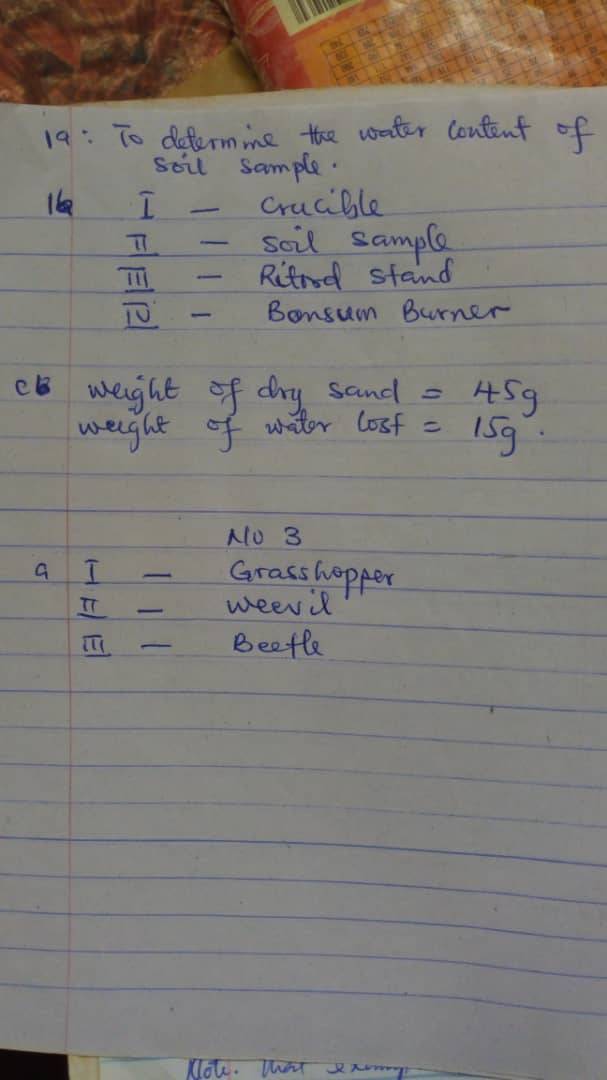 1a: To determine the water content of
soil sample.
1b I — Crucible
II — Soil sample
III — Ritord stand
IV — Bonsum Burner
c weight of dry sand = 45g
weight of water lost = 15g.
NO 3
a I — Grasshopper
II — weevil
III — Beetle
Note. that